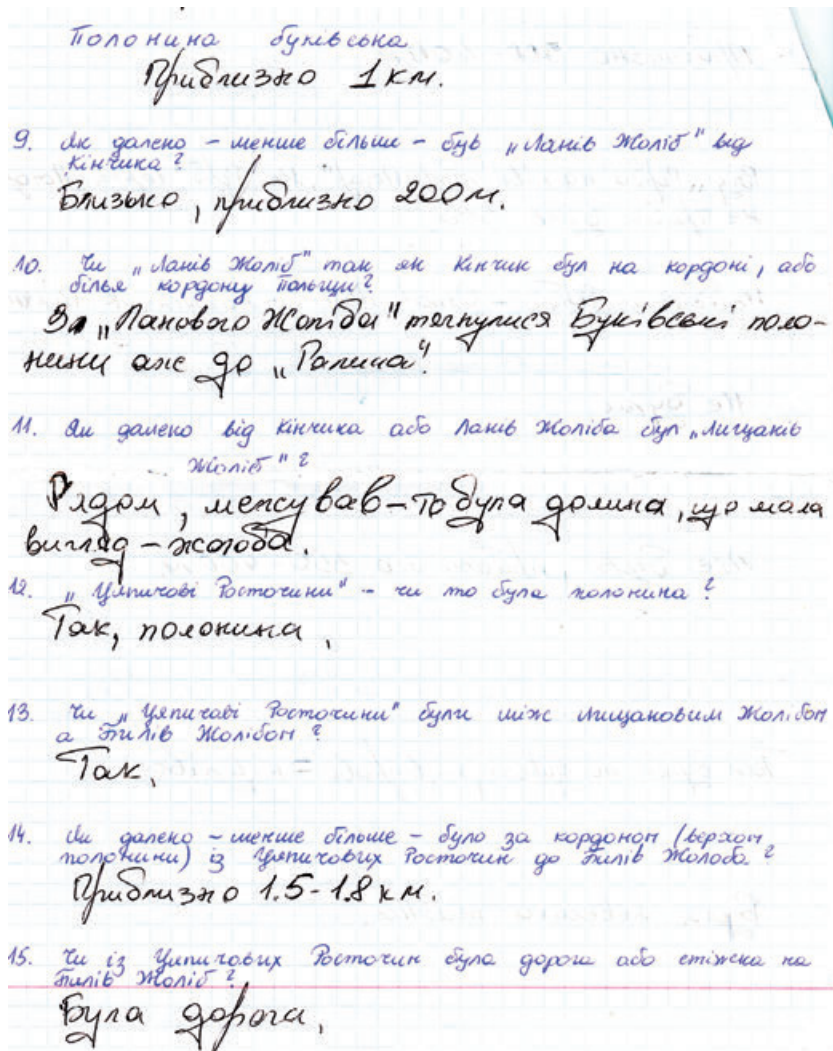 Полонина буківська
Приблизно 1 км.
9. Як далеко – менше більше – був „Ланів Жоліб" від
Кінчика?
Близько, приблизно 200 м.
10. Чи „Ланів Жоліб" так як Кінчик був на кордоні, або
білья кордону Польщи?
За „Лановога Жоліба" тягнулися Буківські поло-
нини аж до „Ралила".
11. Як далеко від Кінчика або Ланів Жоліба был „Лищанів
Жоліб"?
Рядом, межував – то була долина, що мала
вигляд – жолоба.
12. „Цяпичові Росточини" – чи то була полонина?
Так, полонина.
13. Чи „Цяпичові Росточини" були між Лищановим Жолібом
а Пилів Жолібом?
Так.
14. Як далеко – менше більше – було за кордоном (верхом
полонини) із Цяпичових Росточин до Пилів Жолоба?
Приблизно 1.5-1.8 км.
15. Чи із Цяпичових Росточин була дорога або стіжка на
Пилів Жоліб?
Була дорога.